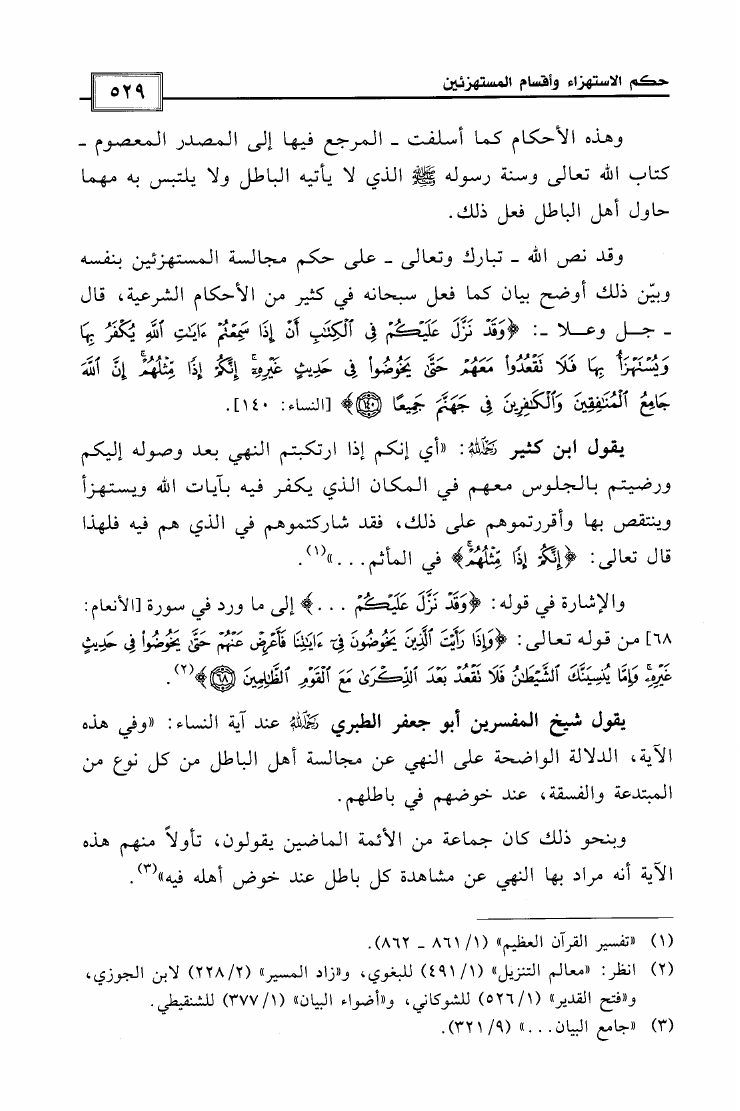 حكم الاستهزاء وأقسام المستهزئين
٥٢٩
وهذه الأحكام كما أسلفت ـ المرجع فيها إلى المصدر المعصوم ـ
كتاب الله تعالى وسنة رسوله ﷺ الذي لا يأتيه الباطل ولا يلتبس به مهما
حاول أهل الباطل فعل ذلك.
وقد نص الله ـ تبارك وتعالى ـ على حكم مجالسة المستهزئين بنفسه
وبيّن ذلك أوضح بيان كما فعل سبحانه في كثير من الأحكام الشرعية، قال
ـ جـل وعـلا ـ: ﴿وَقَدْ نَزَّلَ عَلَيْكُمْ فِى ٱلْكِتَٰبِ أَنْ إِذَا سَمِعْتُمْ ءَايَٰتِ ٱللَّهِ يُكْفَرُ بِهَا
وَيُسْتَهْزَأُ بِهَا فَلَا نَقْعُدُوا۟ مَعَهُمْ حَتَّىٰ يَخُوضُوا۟ فِى حَدِيثٍ غَيْرِهِۦٓ ۚ إِنَّكُمْ إِذًا مِّثْلُهُمْ ۗ إِنَّ ٱللَّهَ
جَامِعُ ٱلْمُنَٰفِقِينَ وَٱلْكَٰفِرِينَ فِى جَهَنَّمَ جَمِيعًا ۝١٤٠﴾ [النساء: ١٤٠].
يقول ابن كثير رحمه الله: «أي إنكم إذا ارتكبتم النهي بعد وصوله إليكم
ورضيتم بالجلوس معهم في المكان الذي يكفر فيه بآيات الله ويستهزأ
وينتقص بها وأقررتموهم على ذلك، فقد شاركتموهم في الذي هم فيه فلهذا
قال تعالى: ﴿إِنَّكُمْ إِذًا مِّثْلُهُمْ﴾ في المأثم...»(١).
والإشارة في قوله: ﴿وَقَدْ نَزَّلَ عَلَيْكُمْ ...﴾ إلى ما ورد في سورة [الأنعام:
٦٨] من قوله تعالى: ﴿وَإِذَا رَأَيْتَ ٱلَّذِينَ يَخُوضُونَ فِىٓ ءَايَٰتِنَا فَأَعْرِضْ عَنْهُمْ حَتَّىٰ يَخُوضُوا۟ فِى حَدِيثٍ
غَيْرِهِۦ ۚ وَإِمَّا يُنسِيَنَّكَ ٱلشَّيْطَٰنُ فَلَا نَقْعُدْ بَعْدَ ٱلذِّكْرَىٰ مَعَ ٱلْقَوْمِ ٱلظَّٰلِمِينَ ۝٦٨﴾(٢).
يقول شيخ المفسرين أبو جعفر الطبري رحمه الله عند آية النساء: «وفي هذه
الآية، الدلالة الواضحة على النهي عن مجالسة أهل الباطل من كل نوع من
المبتدعة والفسقة، عند خوضهم في باطلهم.
وبنحو ذلك كان جماعة من الأئمة الماضين يقولون، تأولاً منهم هذه
الآية أنه مراد بها النهي عن مشاهدة كل باطل عند خوض أهله فيه»(٣).
(١) «تفسير القرآن العظيم» (١/ ٨٦١ ـ ٨٦٢).
(٢) انظر: «معالم التنزيل» (١/ ٤٩١) للبغوي، و«زاد المسير» (٢/ ٢٢٨) لابن الجوزي،
و«فتح القدير» (١/ ٥٢٦) للشوكاني، و«أضواء البيان» (١/ ٣٧٧) للشنقيطي.
(٣) «جامع البيان...» (٩/ ٣٢١).